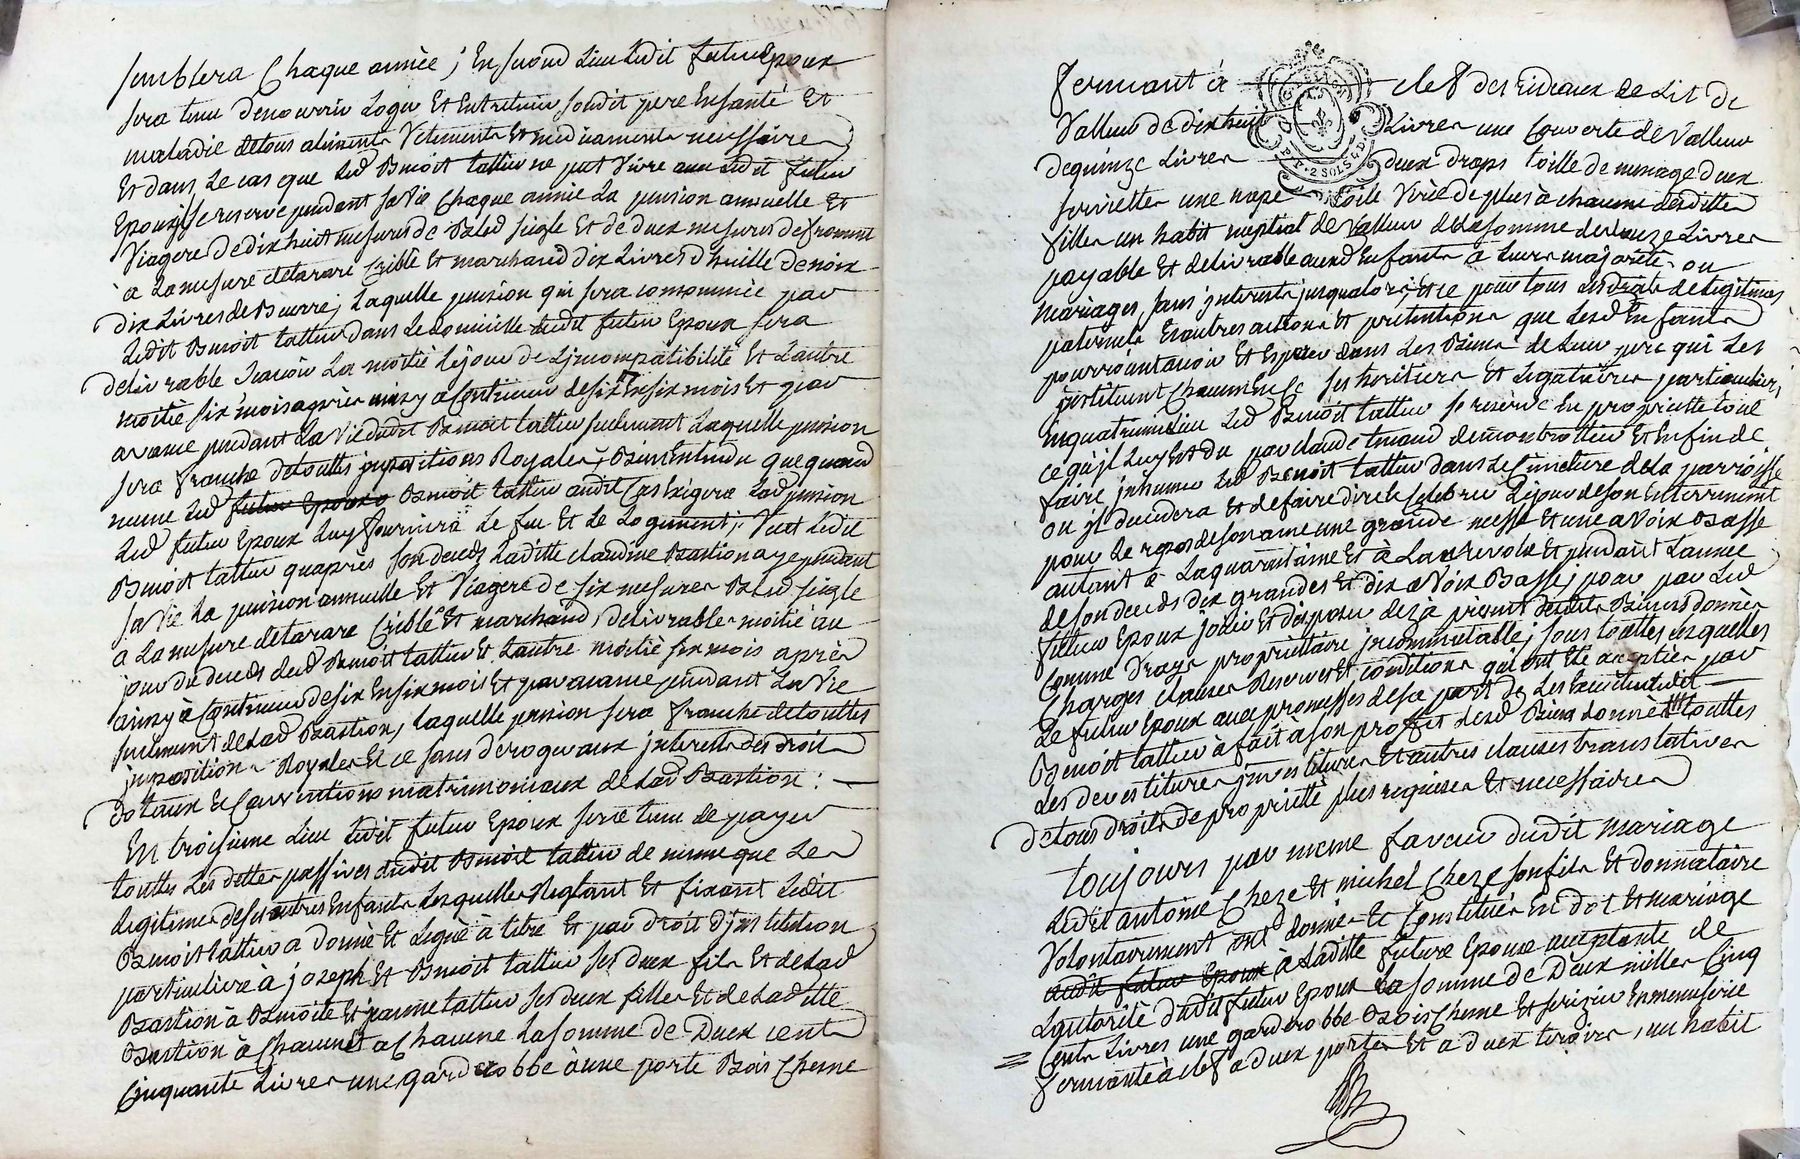 semblera Chaque année ; En second Lieu Ledit futur Epoux
sera tenu denourrir Loger Et Entretenir sondit pere Ensanté Et
maladie detous aliments Vetements Et medicaments necessaires
Et dans Le cas que Led Benoit tatieu ne put Vivre avec Ledit futur
Epoux jl se reserve pendant sa Vie Chaque année La pension annuelle Et
Viagere De dix huit mesures de Bled seigle Et de deux mesures de froment
à La mesure detarare Criblé Et marchand dix Livres d'huille de noix
dix Livres de Beurre ; Laquelle pension qui sera consommée par
Ledit Benoit tatieu dans Le domicille dudit futur Epoux sera
delivrable scavoir La moitié Lejour de Ljncompatibilité Et Lautre
moitié six mois après ainsy a Continuer desix Ensix mois Et par
avance pendant La Vie dudit Benoit tatieu seulement Laquelle pension
sera franche detouttes jmpositions Royales ; Bien Entendu que quand
meme Led futur Epoux Benoit tatieu audit Cas Exigera Lad pension
Led futur Epoux Luy fournira Le feu Et Le Logement ; Veut Ledit
Benoit tatieu quaprès son deceds Laditte claudine Bastion aye pendant
sa Vie La pension annuelle Et Viagere de six mesures Bled seigle
a La mesure detarare Criblé Et marchand, delivrable moitié au
jour du deceds dud Benoit tatieu Et Lautre moitié six mois après
ainsy à Continuer desix Ensix mois Et par avance pendant La Vie
seulement de Lad Bastion, Laquelle pension sera franche detouttes
jmpositions Royales Et ce sans deroger aux jnterests des droits
dotaux Et Conventions matrimoniaux de Lad Bastion :
En troisieme Lieu Ledit futur Epoux sera tenu de payer
touttes Les dettes passives dudit Benoit tatieu de meme que Les
Legitimes deses autres Enfants Lesquelles Reglant Et fixant Ledit
Benoit tatieu a donné Et Legué à titre Et par droit Djnstitution
particuliere à joseph Et Benoit tatieu ses deux fils Et de Lad
Bastion à Benoite Et jeanne tatieu ses deux filles Et de Laditte
Bastion à Chacun Et a Chacune La somme de Deux cents
Cinquante Livres une garderobbe à une porte Bois Chesne
fermant à clef des rideaux de Lit de
Valleur de dix huit Livres une Couverte de Valleur
de quinze Livres deux draps toille de menage deux
serviettes une nape toile Virée de plus à chacune desdittes
filles un habit nuptial de Valleur de La somme de Livres
payable Et delivrable auxd Enfants à Leurs majorité ou
mariages, sans jnterests jusqualors ; Et ce pour tous Les droits de Legitimes
paternels Et autres actions Et pretentions que Lesd Enfants
pourroient avoir Et Esperer dans Les Biens de Leur pere qui Les
jnstituent Chacun En Ce ses heritiers Et Legataires particuliers
Enquatrieme Lieu Led Benoit tatieu se reserve En proprieté tout
ce qu'jl Luy Est du par claude de montrottier Et Enfin de
faire jnhumer Led Benoit tatieu dans Le Cimetiere de La parroisse
ou jl decedera Et de faire dire Et Celebrer Lejour deson Enterrement
pour Le repos deson ame une grande messe Et une a Voix Basse
autant à Laquarantaine Et à La revolu Et pendant Lannée
de son deceds dix grandes Et dix a Voix Basse ; pour par Led
futur Epoux jouir Et disposer dez à present desdits Biens donnés
Comme Vray propriétaire jncommutable ; sous touttes Lesquelles
Charges clauses Reserves Et conditions qui ont Eté acceptées par
Le futur Epoux avec promesses de sa part de Les Executer Ledit
Benoit tatieu à fait à son proffit desd Biens donnés touttes
Les devestitures jnvestitures Et autres clauses translatives
detous droits de proprieté plus requises Et necessaires
toujours par meme faveur dudit mariage
Ledit antoine Cheze Et michel Cheze son fils Et donnataire
Volontairement ont donné Et Constitué En dot Et mariage
audit futur Epoux à Laditte future Epouse acceptante de
Lautorité dudit futur Epoux La somme de Deux milles Cinq
Cents Livres une garderobbe Bois Chesne Et serizier En menuserie
fermante à clef a deux portes Et a deux tiroirs, un habit